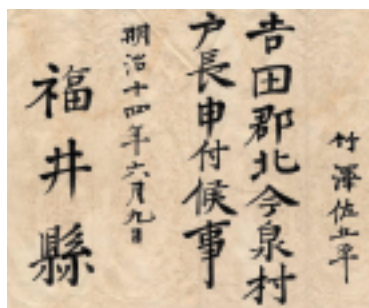 竹澤佐五平
吉田郡北今泉村
戸長申付候事
明治十四年六月九日
福井縣